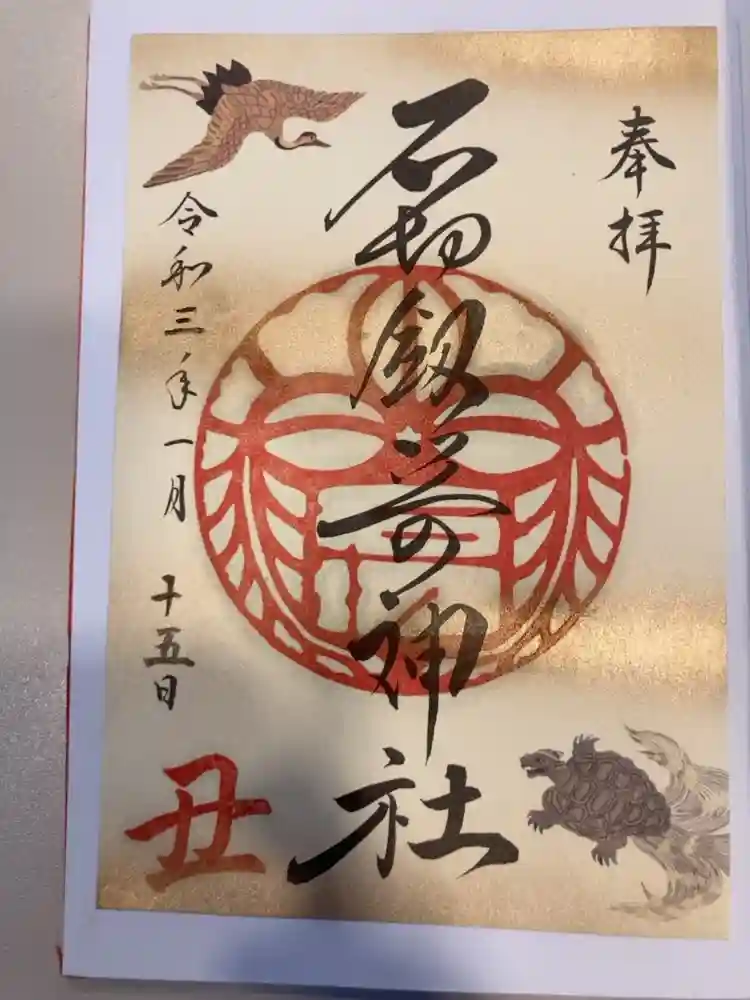 奉拝
石切劔箭神社
令和三年一月 十五日
丑